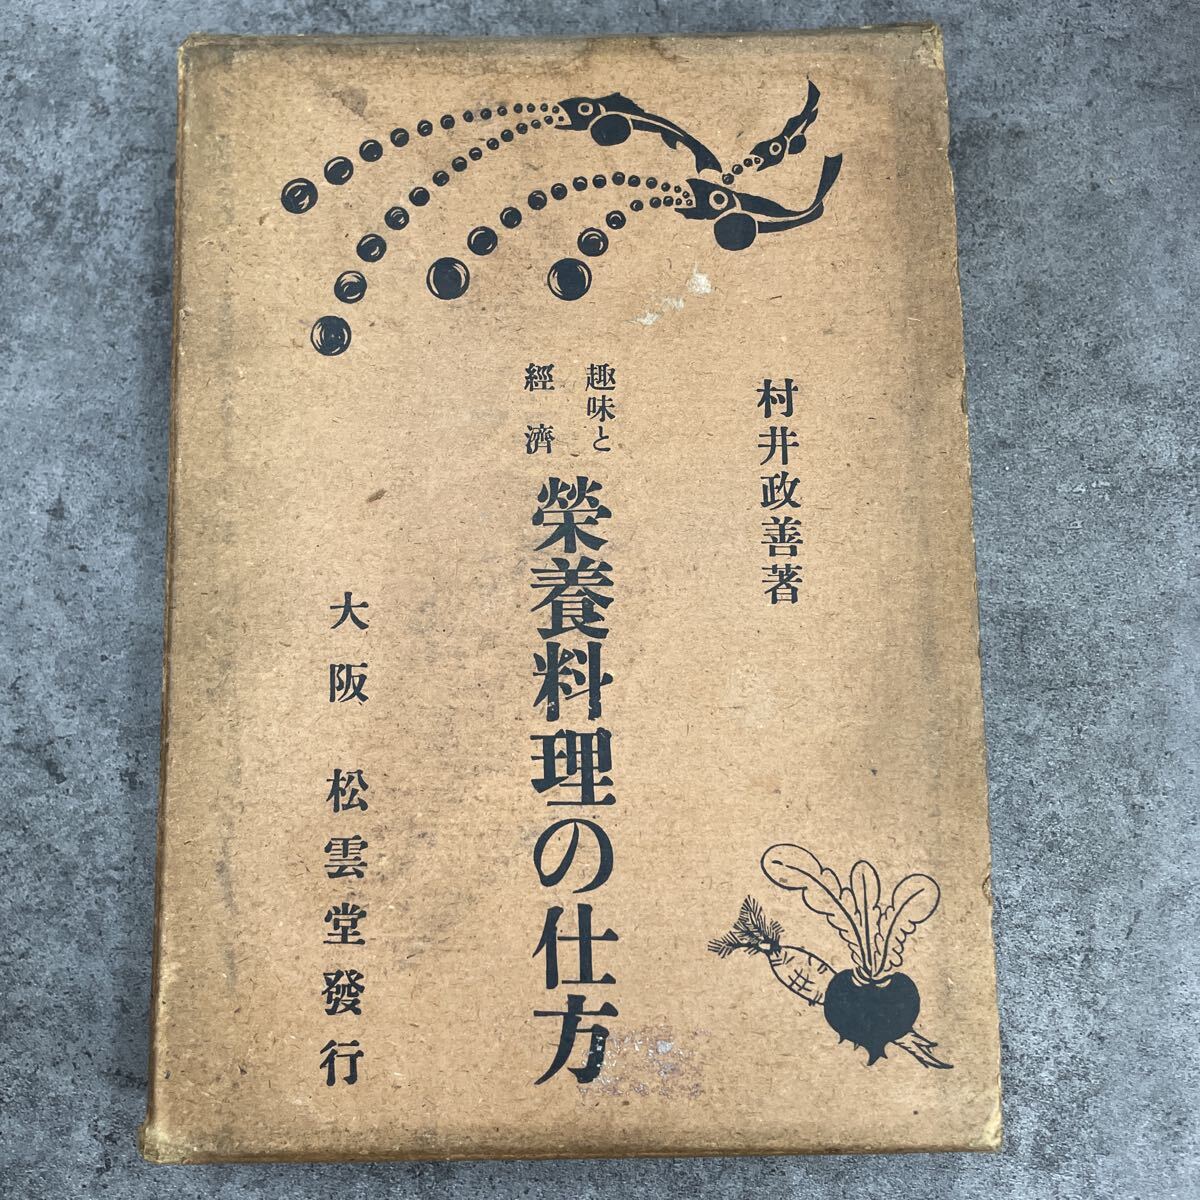 村井政善著
趣味と
經濟
榮養料理の仕方
大阪 松雲堂發行